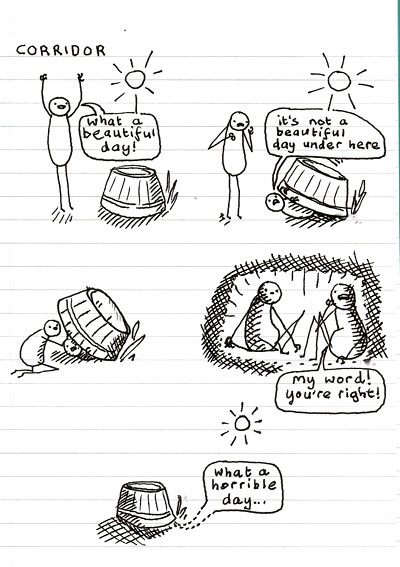 CORRIDOR
what a
beautiful
day!
it's not a
beautiful
day under here
my word!
you're right!
what a
horrible
day...